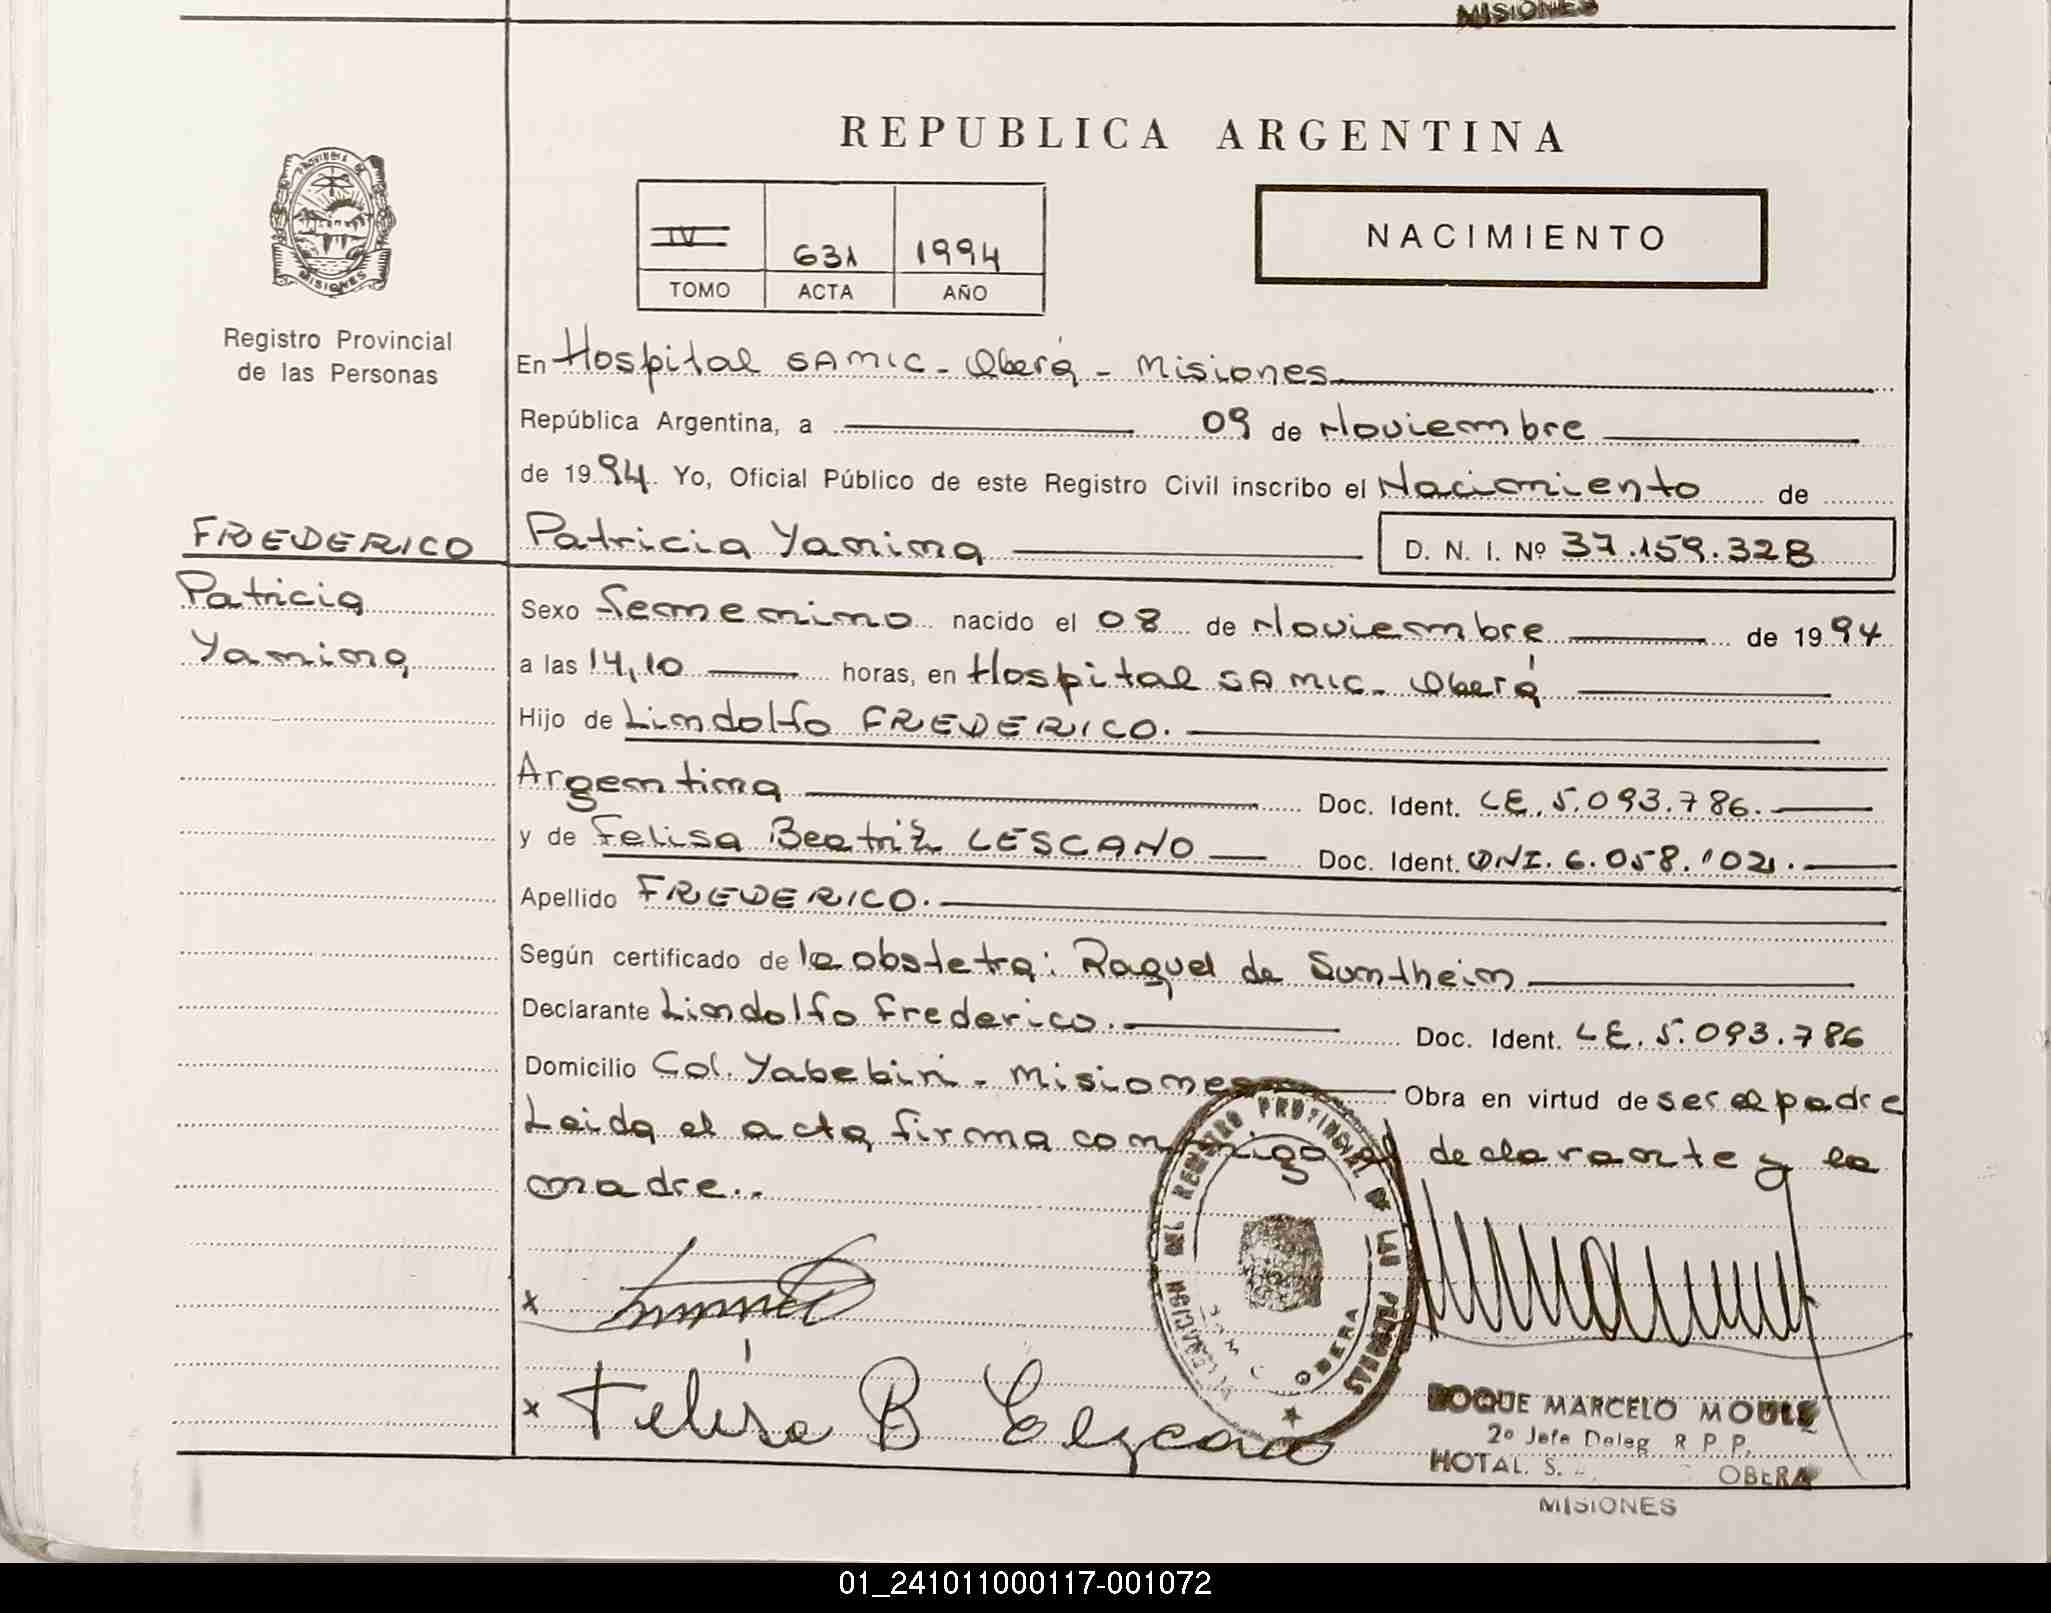 MISIONES
REPUBLICA ARGENTINA
IV 631 1994
TOMO ACTA AÑO
NACIMIENTO
Registro Provincial
de las Personas
En Hospital SAMIC - Oberá - Misiones
República Argentina, a 09 de Noviembre
de 1994. Yo, Oficial Público de este Registro Civil inscribo el Nacimiento de
FREDERICO
Patricia
Yanina
Patricia Yanina D. N. I. Nº 37.159.328
Sexo femenino nacido el 08 de Noviembre de 1994
a las 14,10 horas, en Hospital SAMIC - Oberá
Hijo de Lindolfo FREDERICO.
Argentina Doc. Ident. LE. 5.093.786.
y de Felisa Beatriz LESCANO Doc. Ident. DNI. 6.058.102.
Apellido FREDERICO.
Según certificado de la obstetra: Raquel de Suntheim
Declarante Lindolfo Frederico. Doc. Ident. LE. 5.093.786
Domicilio Col. Yabebiri - Misiones Obra en virtud de ser el padre
Leida el acta firma conmigo el declarante y la
madre..
x
x Felisa B Lezcano
DELEGACION DEL REGISTRO PROVINCIAL DE LAS PERSONAS
OBERA
ROQUE MARCELO MOULE
2º Jefe Deleg R P P.
HOTAL. S. OBERA
MISIONES
01_241011000117-001072